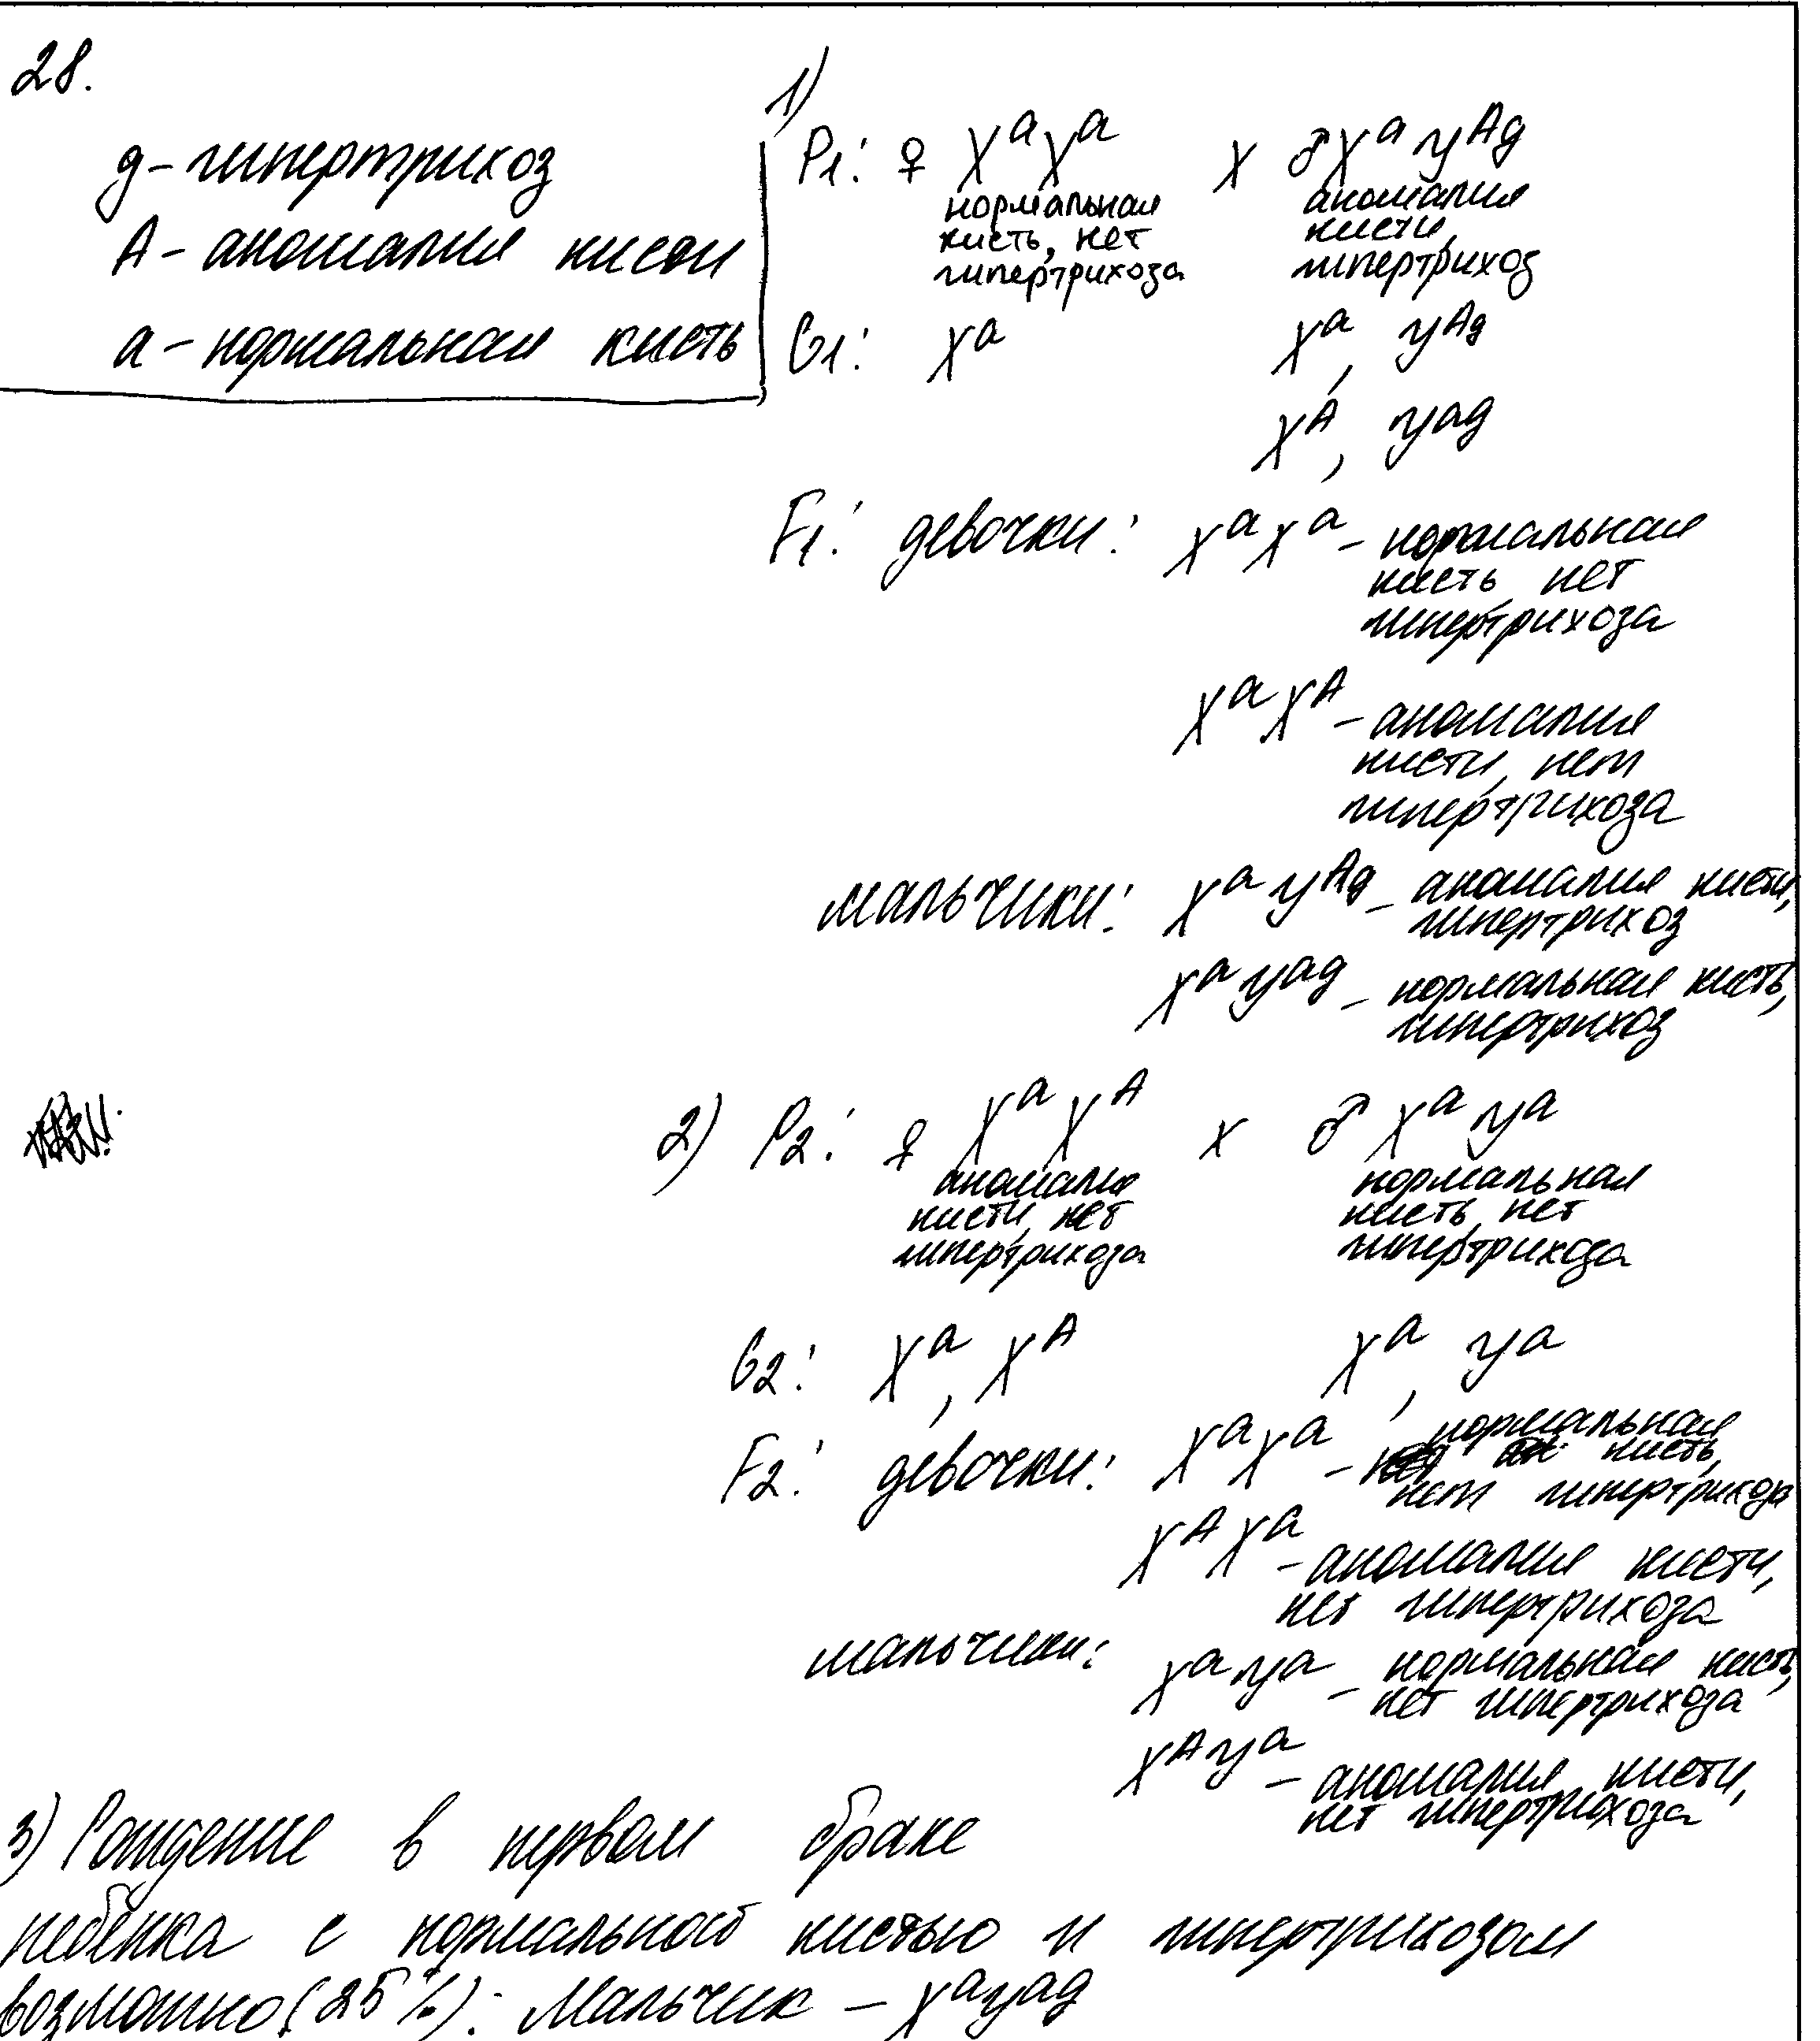 28.
1)
g - гипертрихоз
A - аномалия кисти
a - нормальная кисть
P1: ♀ XᵃXᵃ x ♂ Xᵃ yᴬᵍ
нормальная аномалия
кисть, нет кисти,
гипертрихоза гипертрихоз
G1: Xᵃ Xᵃ, yᴬᵍ
Xᴬ, yᵃᵍ
F1: девочки: XᵃXᵃ - нормальная
кисть, нет
гипертрихоза
XᵃXᴬ - аномалия
кисти, нет
гипертрихоза
мальчики: Xᵃ yᴬᵍ - аномалия кисти,
гипертрихоз
Xᵃ yᵃᵍ - нормальная кисть,
гипертрихоз
2) P2: ♀ XᵃXᴬ x ♂ Xᵃ yᵃ
аномалия нормальная
кисти, нет кисть, нет
гипертрихоза гипертрихоза
G2: Xᵃ, Xᴬ Xᵃ, yᵃ
F2: девочки: XᵃXᵃ - нормальная
кисть,
нет гипертрихоза
XᴬXᵃ - аномалия кисти,
нет гипертрихоза
мальчики: Xᵃyᵃ - нормальная кисть,
нет гипертрихоза
Xᴬyᵃ - аномалия кисти,
нет гипертрихоза
3) Рождение в первом браке
ребёнка с нормальной кистью и гипертрихозом
возможно (25%): Мальчик - Xᵃyᵃᵍ